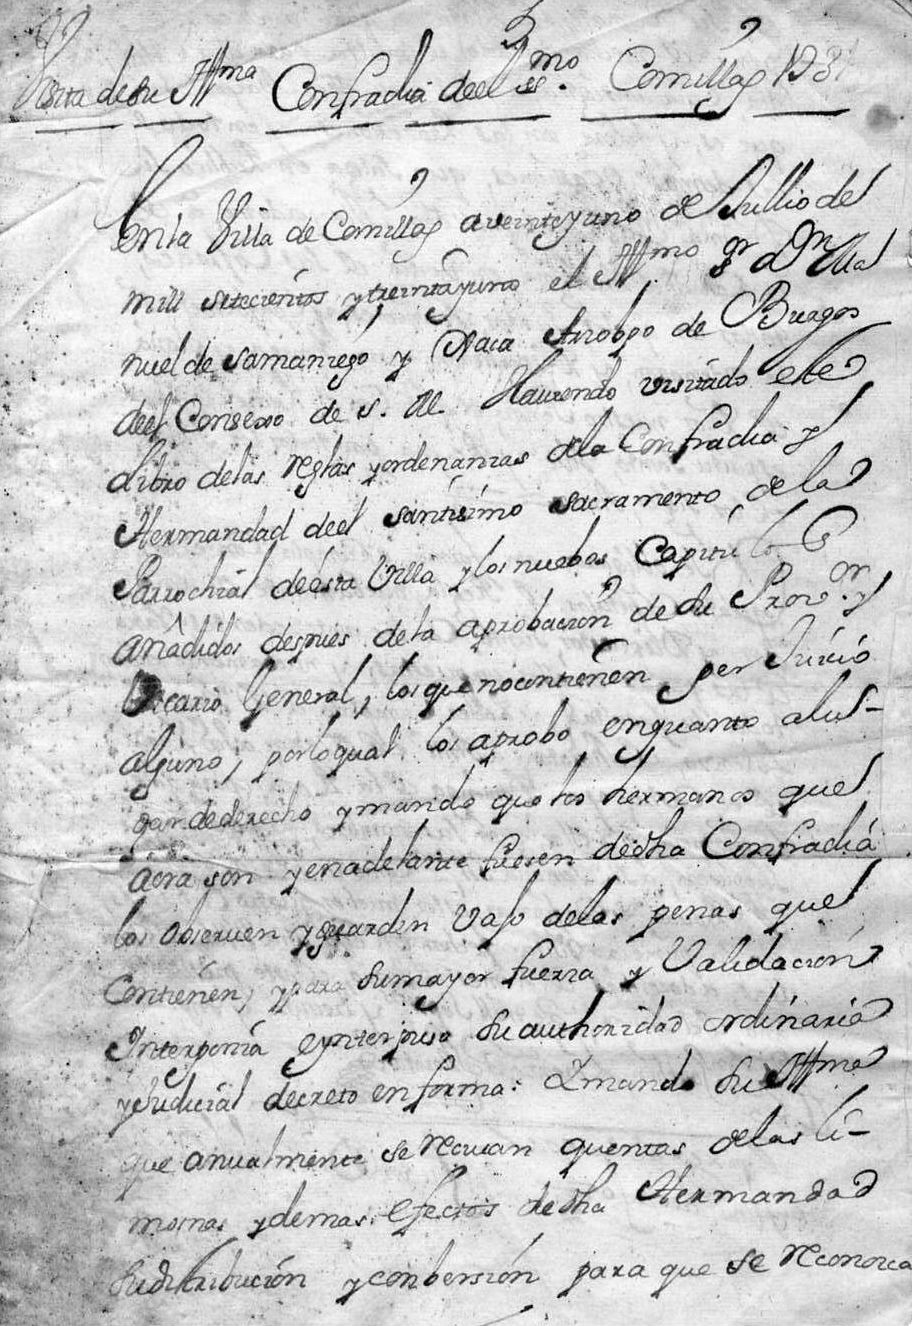 Visita de Su Ill.ma Confradia deel SS.mo Comillas 1731
En la Villa de Comillas a veinte y uno de Jullio de
mill setecientos y treinta y uno el Ill.mo Sr Dn Ma
nuel de Samaniego y Jaca Arzobpo de Burgos
deel Consexo de S. M. Haviendo visitado este
Libro de las reglas y ordenanzas de la Confradia y
Hermandad deel santisimo sacramento de la
Parrochial de esta Villa y los nuebos Capitulos
añadidos despues de la aprobacion de Su Provor y
Vicario General, los que no contienen perjuicio
alguno, por lo qual los aprobo en quanto a lu-
gar de derecho y mando que los hermanos que
aora son y en adelante fuesen de dha Confradia
los observen y guarden vajo de las penas que
contienen, y para su mayor fuerza y Validacion
Interponia e ynterpuso Su authoridad ordinaria
y Judicial decreto en forma: Y mando Su Ill.ma
que anualmente se recivan quentas de las li-
mosnas y demas efectos de dha Hermandad
su distribucion y conbersion para que se reconozca